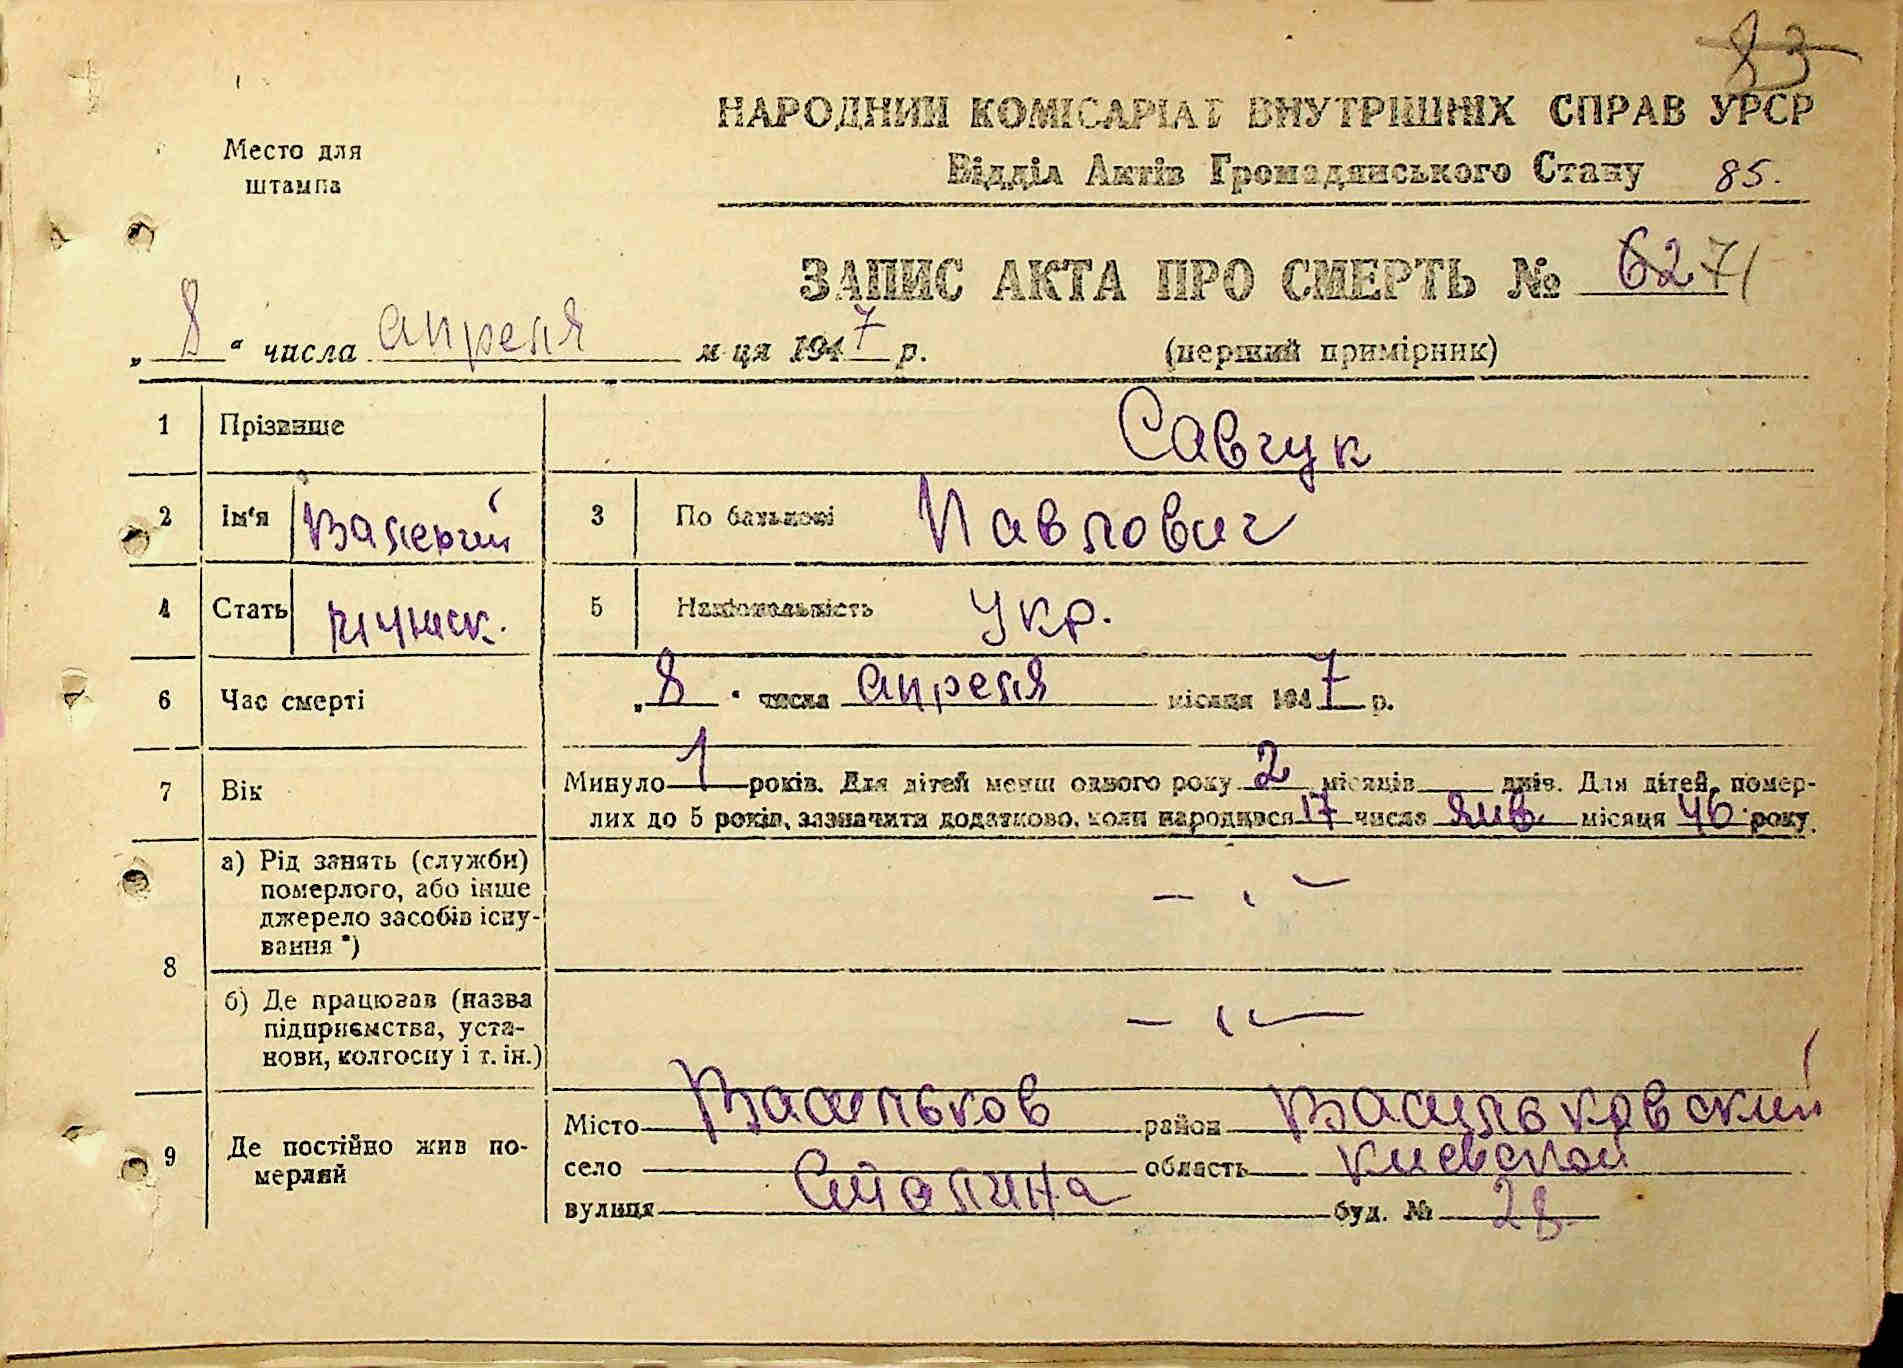 83
НАРОДНИЙ КОМІСАРІАТ ВНУТРІШНІХ СПРАВ УРСР
Место для
штампа
Відділ Актів Громадянського Стану 85.
ЗАПИС АКТА ПРО СМЕРТЬ № 62 71
„ 8 “ числа апреля м-ця 1947 р. (перший примірник)
1 Прізвище Савчук
2 Ім'я Валерий 3 По батькові Павлович
4 Стать мужск. 5 Національність Укр.
6 Час смерті „ 8 “ числа апреля місяця 1947 р.
7 Вік Минуло 1 років. Для дітей менш одного року 2 місяців днів. Для дітей, помер-
лих до 5 років, зазначити додатково, коли народився 17 числа янв. місяця 46 року.
8 а) Рід занять (служби)
померлого, або інше
джерело засобів існу-
вання *) — „ —
б) Де працював (назва
підприємства, уста-
нови, колгоспу і т. ін.) — „ —
9 Де постійно жив по-
мерлий
Місто Васильков район Васильковский
село область Киевской
вулиця Сталина буд. № 28